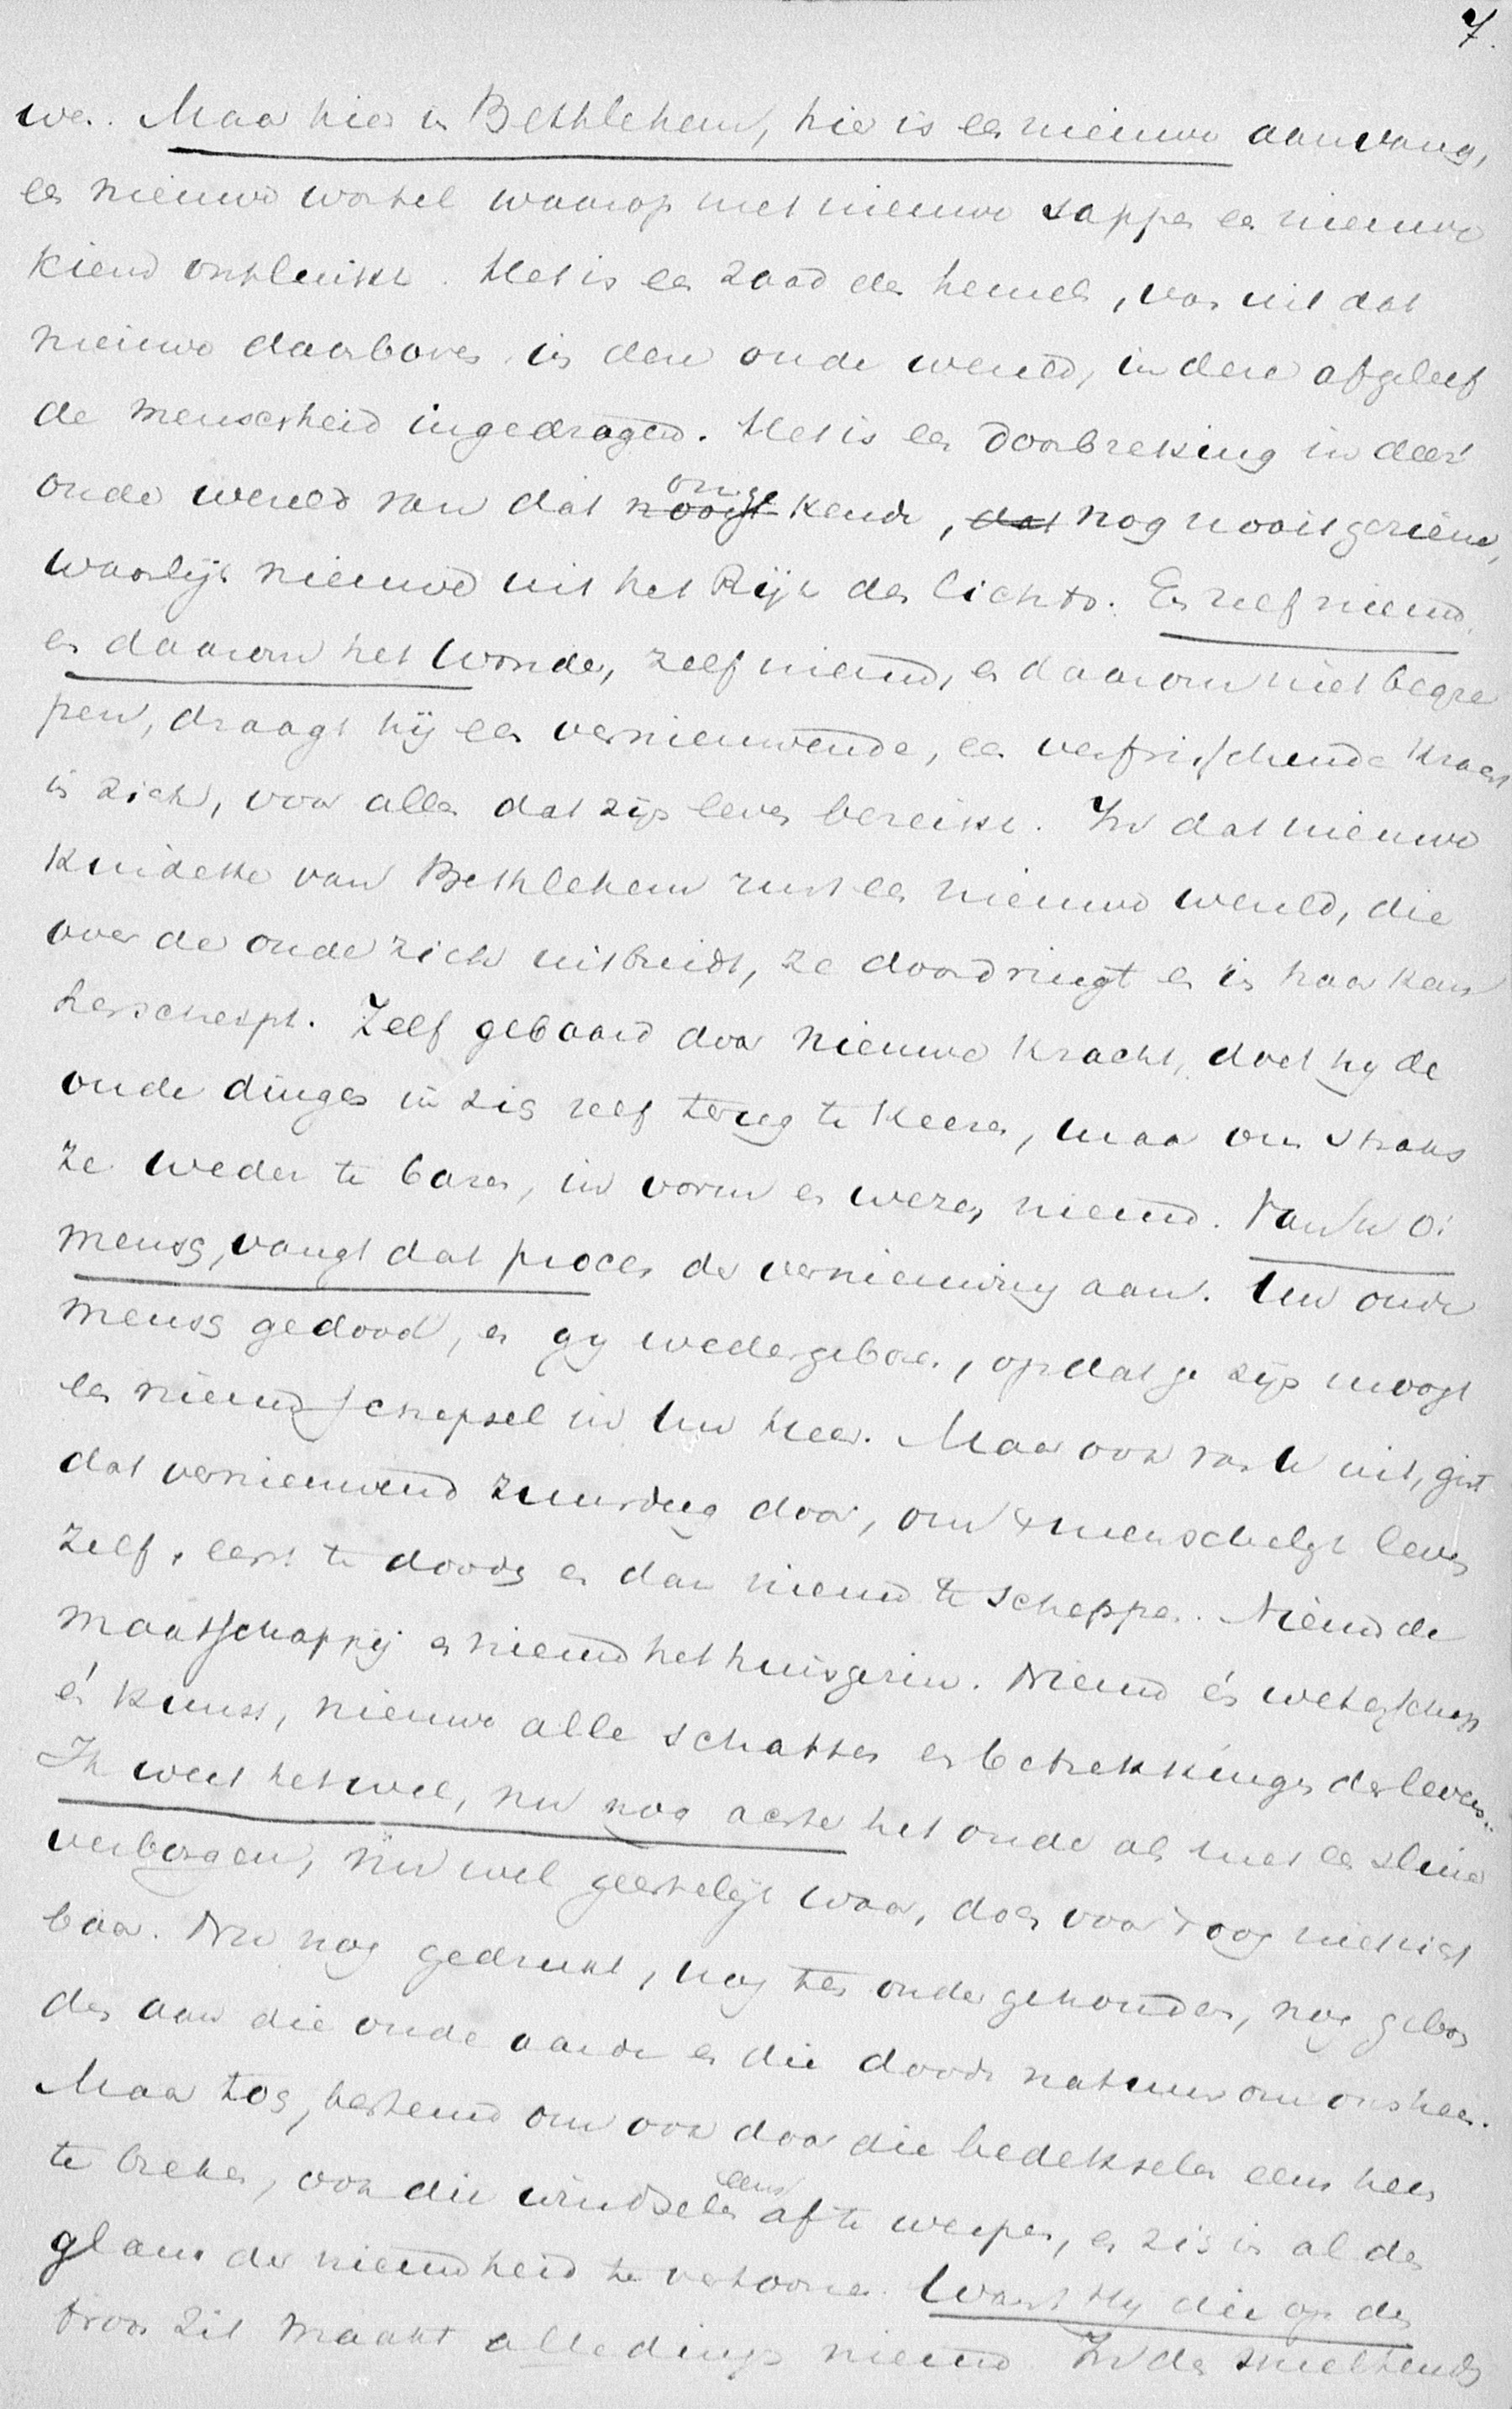 7.
wen. Maar hier in Bethlehem, hier is een nieuwe aanvang,
een nieuwe wortel waarop met nieuwe sappen een nieuwe
kiem ontluikt. Het is een zaad des hemels, van uit dat
nieuwe daarboven in den oude wereld, in dere afgeleef
de menscheid ingedragen. Het is een doorbreking in deez'
oude wereld van dat ongekende, nog nooit geziene,
waarlijk nieuwe uit het Rijk des lichts. En zelf nieuw
en daarom het wonder, zelf nieuw, en daarom niet begre
pen, draagt hij een vernieuwende, een verfrisschende kracht
in zich, voor allen dat zijn leven bereikt. In dat nieuwe
kindeke van Bethlehem rust een nieuwe wereld, die
over de oude zich uitbreidt, ze doordringt en in haar kern
herschept. Zelf gebaard door nieuwe kracht, doet hij de
oude dingen in zig zelf terug te keeren, maar om straks
ze weder te baren, in vorm en wezen nieuw. Van U o!
mensg, vangt dat proces der vernieuwing aan. Uw oude
mensg gedood, en gy wedergeboren, opdat ge zijn moogt
een nieuw schepsel in Uw Heer. Maar ook van U uit, gist
dat vernieuwend zuurdeeg door, om 't menschelijk leven
zelf, eerst te dooden en dan nieuw te scheppen. Nieuw de
maatschappij en nieuw het huisgezin. Nieuw én wetenschap
én kunst, nieuwe alle schatten en betrekkingen des levens.
Ik weet het wel, nu nog achter het oude als met een sluier
verborgen, nu wel geestelijk waar, dog voor 't oog niet zigt
baar. Nu nog gedrukt, nog ten onder gehouden, nog gebon
den aan die oude aarde en die doode natuur om ons heen.
Maar tog, bestemd om ook door die bedekselen eens heen
te breken, ook die windselen eens af te werpen, en zig in al den
glans der nieuwheid te vertoonen. Want Hij die op den
troon zit maakt alle dingen nieuw. In de smeltende